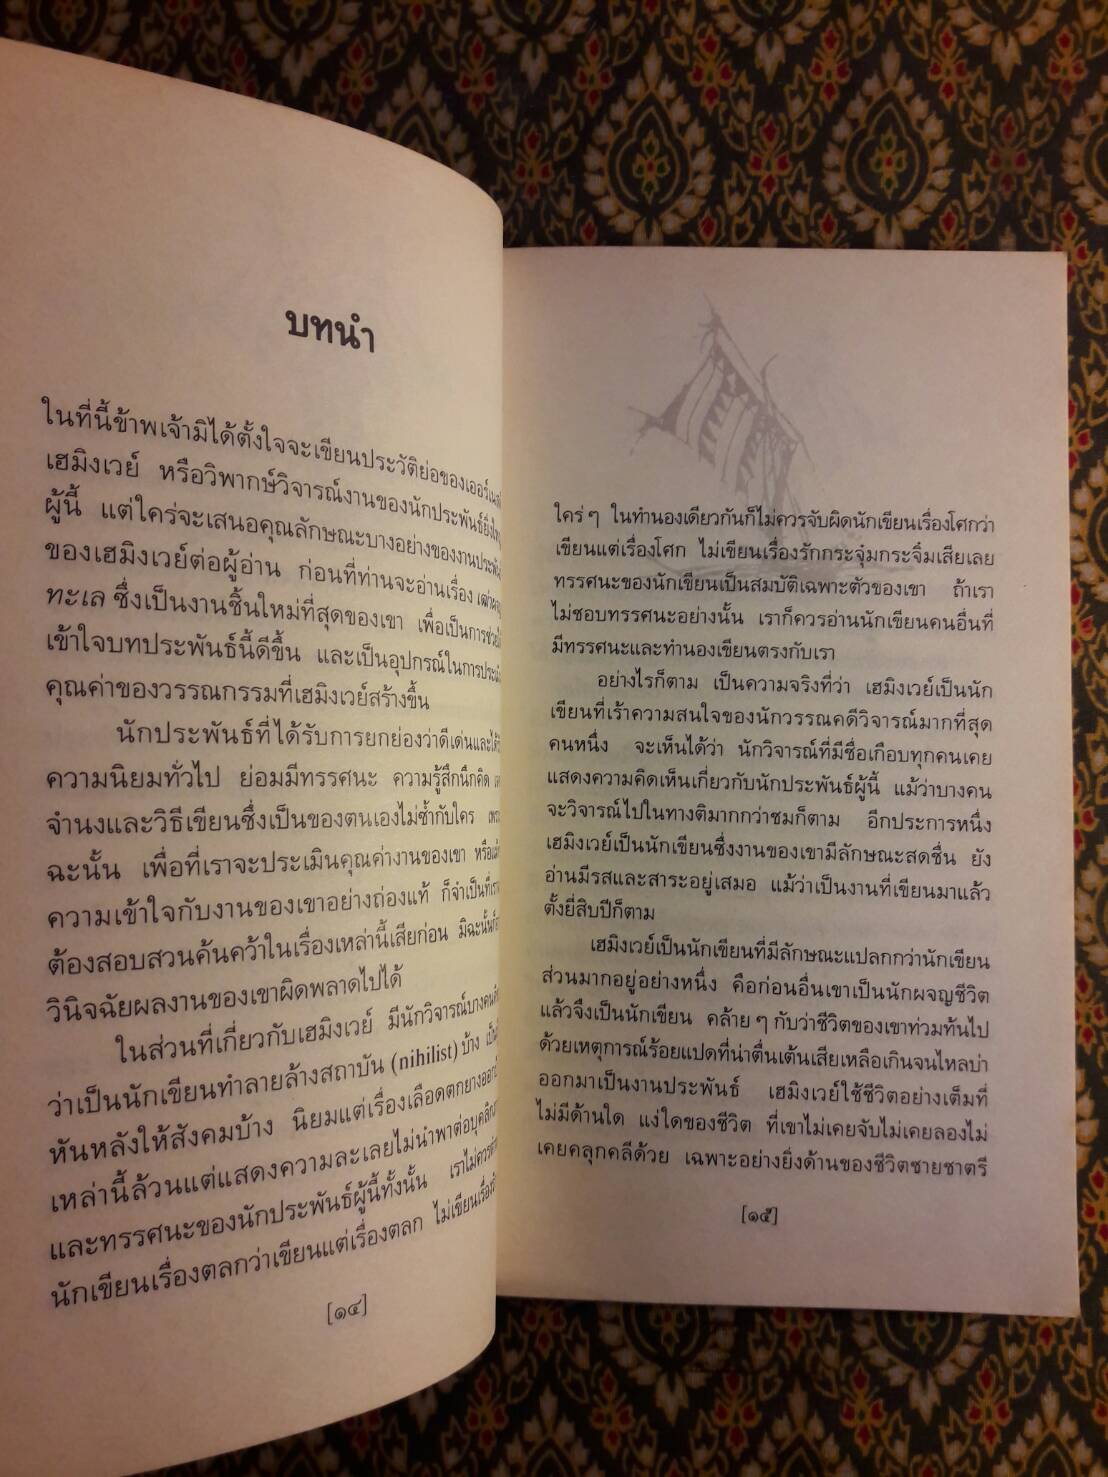 บทนำ
ในที่นี้ข้าพเจ้ามิได้ตั้งใจจะเขียนประวัติย่อของเออร์เนสต์
เฮมิงเวย์ หรือวิพากษ์วิจารณ์งานของนักประพันธ์ยิ่งใหญ่
ผู้นี้ แต่ใคร่จะเสนอคุณลักษณะบางอย่างของงานประพันธ์
ของเฮมิงเวย์ต่อผู้อ่าน ก่อนที่ท่านจะอ่านเรื่อง
ทะเล ซึ่งเป็นงานชิ้นใหม่ที่สุดของเขา เพื่อเป็นการช่วย
เข้าใจบทประพันธ์นี้ดีขึ้น และเป็นอุปกรณ์ในการประเมิน
คุณค่าของวรรณกรรมที่เฮมิงเวย์สร้างขึ้น
นักประพันธ์ที่ได้รับการยกย่องว่าดีเด่นและได้รับ
ความนิยมทั่วไป ย่อมมีทรรศนะ ความรู้สึกนึกคิด
จำนงและวิธีเขียนซึ่งเป็นของตนเองไม่ซ้ำกับใคร เพราะ
ฉะนั้น เพื่อที่เราจะประเมินคุณค่างานของเขา หรือ
ความเข้าใจกับงานของเขาอย่างถ่องแท้ ก็จำเป็นที่เรา
ต้องสอบสวนค้นคว้าในเรื่องเหล่านี้เสียก่อน มิฉะนั้น
วินิจฉัยผลงานของเขาผิดพลาดไปได้
ในส่วนที่เกี่ยวกับเฮมิงเวย์ มีนักวิจารณ์บางคน
ว่าเป็นนักเขียนทำลายล้างสถาบัน (nihilist) บ้าง
หันหลังให้สังคมบ้าง นิยมแต่เรื่องเลือดตกยางออก
เหล่านี้ล้วนแต่แสดงความละเลยไม่นำพาต่อบุคลิก
และทรรศนะของนักประพันธ์ผู้นี้ทั้งนั้น เราไม่ควร
นักเขียนเรื่องตลกว่าเขียนแต่เรื่องตลก ไม่เขียนเรื่อง
[๑๔]
ใคร่ๆ ในทำนองเดียวกันก็ไม่ควรจับผิดนักเขียนเรื่องโศกว่า
เขียนแต่เรื่องโศก ไม่เขียนเรื่องรักกระจุ๋มกระจิ๋มเสียเลย
ทรรศนะของนักเขียนเป็นสมบัติเฉพาะตัวของเขา ถ้าเรา
ไม่ชอบทรรศนะอย่างนั้น เราก็ควรอ่านนักเขียนคนอื่นที่
มีทรรศนะและทำนองเขียนตรงกับเรา
อย่างไรก็ตาม เป็นความจริงที่ว่า เฮมิงเวย์เป็นนัก
เขียนที่เร้าความสนใจของนักวรรณคดีวิจารณ์มากที่สุด
คนหนึ่ง จะเห็นได้ว่า นักวิจารณ์ที่มีชื่อเกือบทุกคนเคย
แสดงความคิดเห็นเกี่ยวกับนักประพันธ์ผู้นี้ แม้ว่าบางคน
จะวิจารณ์ไปในทางติมากกว่าชมก็ตาม อีกประการหนึ่ง
เฮมิงเวย์เป็นนักเขียนซึ่งงานของเขามีลักษณะสดชื่น ยัง
อ่านมีรสและสาระอยู่เสมอ แม้ว่าเป็นงานที่เขียนมาแล้ว
ตั้งยี่สิบปีก็ตาม
เฮมิงเวย์เป็นนักเขียนที่มีลักษณะแปลกกว่านักเขียน
ส่วนมากอยู่อย่างหนึ่ง คือก่อนอื่นเขาเป็นนักผจญชีวิต
แล้วจึงเป็นนักเขียน คล้ายๆ กับว่าชีวิตของเขาท่วมท้นไป
ด้วยเหตุการณ์ร้อยแปดที่น่าตื่นเต้นเสียเหลือเกินจนไหลบ่า
ออกมาเป็นงานประพันธ์ เฮมิงเวย์ใช้ชีวิตอย่างเต็มที่
ไม่มีด้านใด แง่ใดของชีวิต ที่เขาไม่เคยจับไม่เคยลองไม่
เคยคลุกคลีด้วย เฉพาะอย่างยิ่งด้านของชีวิตชายชาตรี
[๑๕]